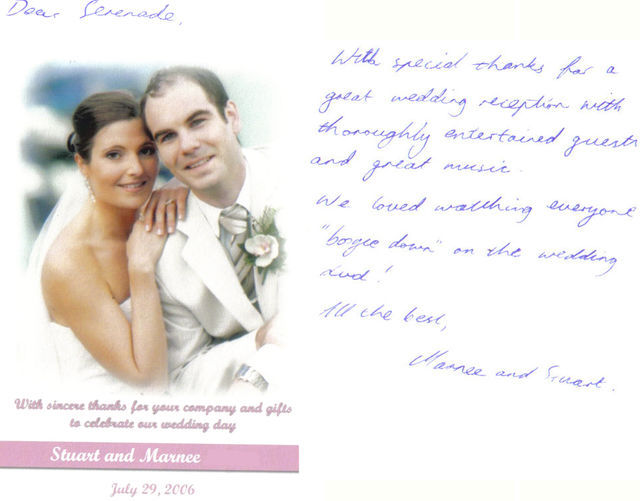 Dear Serenade,
With special thanks for a
great wedding reception with
thoroughly entertained guests
and great music.
We loved watching everyone
"boogie down" on the wedding
dvd!
All the best,
Marnee and Stuart.
With sincere thanks for your company and gifts
to celebrate our wedding day
Stuart and Marnee
July 29, 2006